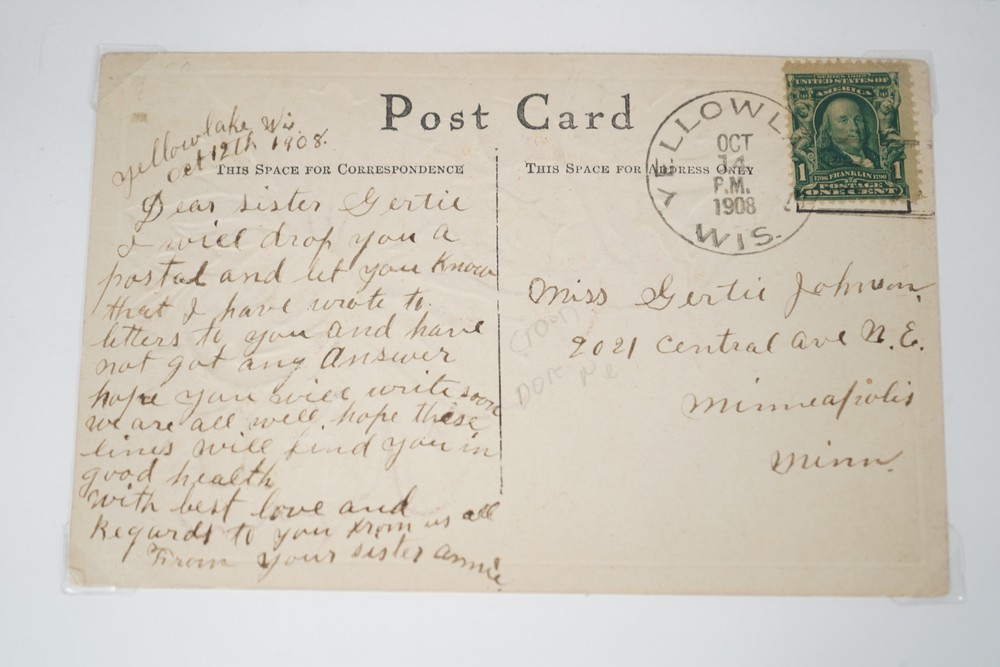 Post Card
Yellow lake Wis
Oct 12th 1908.
THIS SPACE FOR CORRESPONDENCE
Dear sister Gertie
I will drop you a
postal and let you Know
that I have wrote to
letters to you and have
not got any Answer
hope you will write soon
we are all well hope these
lines will find you in
good health
with best love and
Regards to you from us all
From your sister annie
THIS SPACE FOR ADDRESS ONLY
YELLOWL
OCT
14
P.M.
1908
WIS.
SERIES 1902
UNITED STATES OF
AMERICA
1 1706 FRANKLIN 1790 1
POSTAGE
ONE CENT
Miss Gertie Johnson
2021 Central ave N.E.
Minneapolis
Minn.